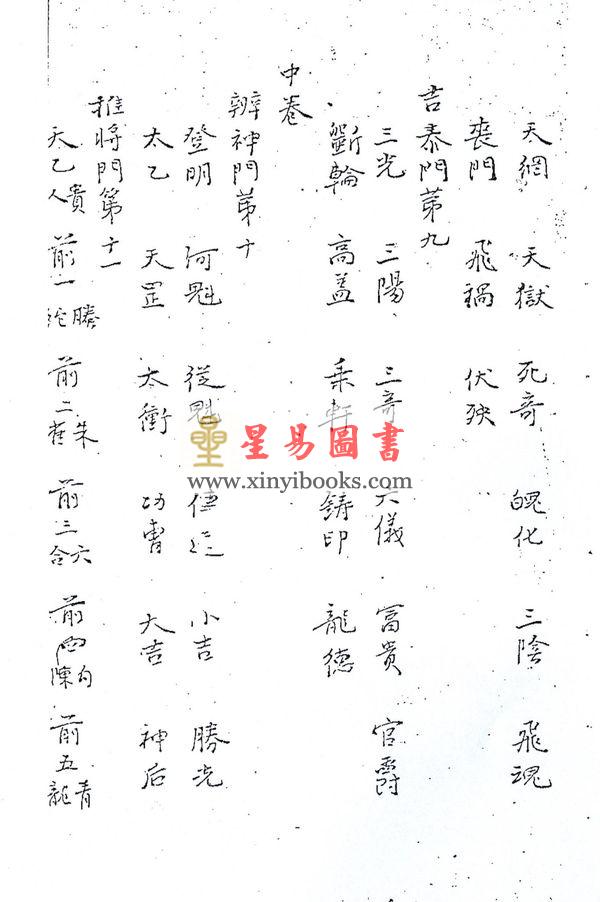 天網 天獄 死奇 魄化 三陰 飛魂
喪門 飛禍 伏殃
吉泰門第九
三光 三陽 三奇 六儀 富貴 官爵
斵輪 高盖 乘軒 鋳印 龍德
中卷
辨神門第十
登明 河魁 從魁 傳送 小吉 勝光
太乙 天罡 太衝 功曹 大吉 神后
推将門第十一
天乙貴人 前一螣蛇 前二朱雀 前三六合 前四勾陳 前五青龍
星易圖書
www.xinyibooks.com